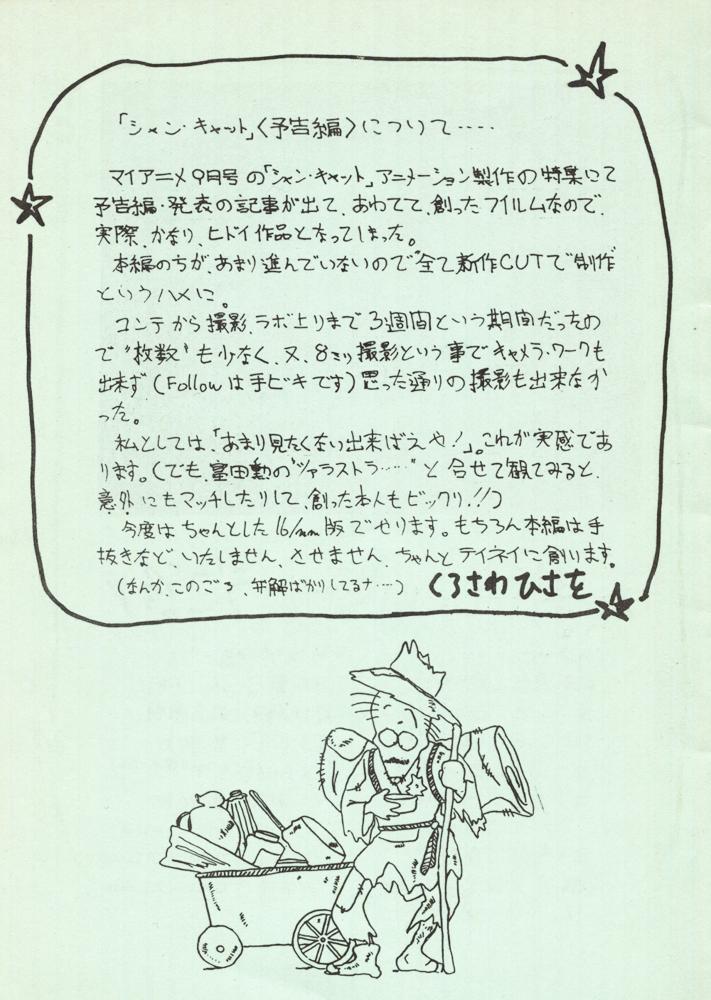 「シャン・キャット」〈予告編〉について‥‥
マイアニメ9月号の「シャン・キャット」アニメーション製作の特集にて
予告編・発表の記事が出て、あわてて、創ったフイルムなので、
実際、かなり、ヒドイ作品となってしまった。
本編のちが、あまり進んでいないので"全て新作CUTで"制作
というハメに。
コンテから撮影、ラボ上りまで3週間という期間だったの
で"枚数"も少なく、又、8ミリ撮影という事でキャメラ・ワークも
出来ず(Followは手ビキです)思った通りの撮影も出来なか
った。
私としては、「あまり見たくない出来ばえや!」。これが実感であ
ります。(でも、富田勲の"ツァラストラ‥‥"と合せて観てみると、
意外にもマッチしたりして、創った本人もビックリ!!)
今度はちゃんとした16/mm版でやります。もちろん本編は手
抜きなど、いたしません、させません、ちゃんとテイネイに創ります。
(なんか、このごろ、弁解ばかりしてるナ‥‥) くろさわひさを